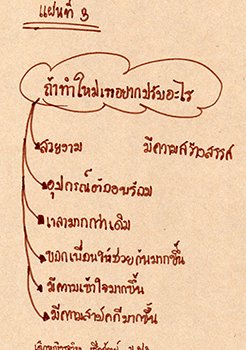 แผนที่ 3
ถ้าทำใหม่เราอยากปรับอะไร
สวยงาม มีความสร้างสรรค์
อุปกรณ์ต้องพร้อม
เวลามากกว่าเดิม
บอกเพื่อนให้ช่วยกันมากขึ้น
มีความเข้าใจมากขึ้น
มีความสามัคคีมากขึ้น